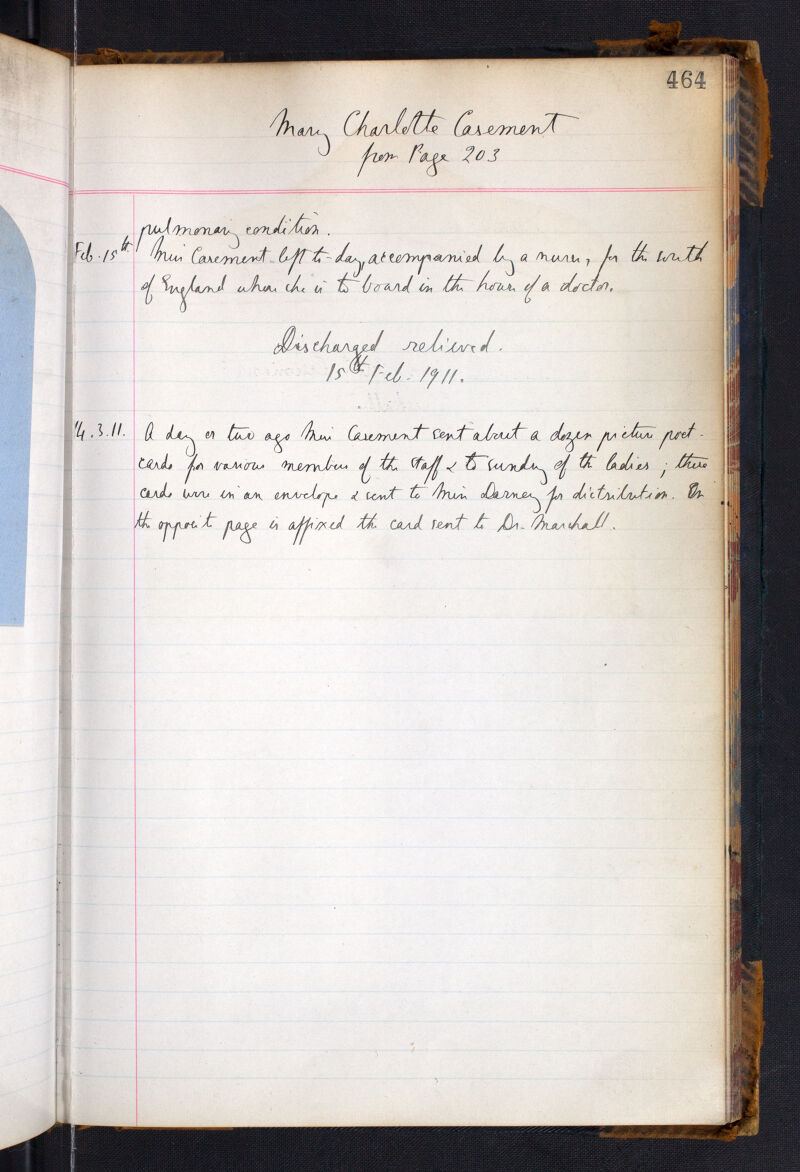 464
Mary Charlotte Casement
from Page 203
pulmonary condition.
Feb. 15th Miss Casement left to-day, accompanied by a nurse, for the south
of England where she is to board in the house of a doctor.
Discharged relieved.
15th Feb. 1911.
14.3.11. A day or two ago Miss Casement sent about a dozen picture post-
cards for various members of the staff & to sundry of the ladies; these
cards were in an envelope & sent to Miss Darney for distribution. On
the opposite page is affixed the card sent to Dr. Marshall.